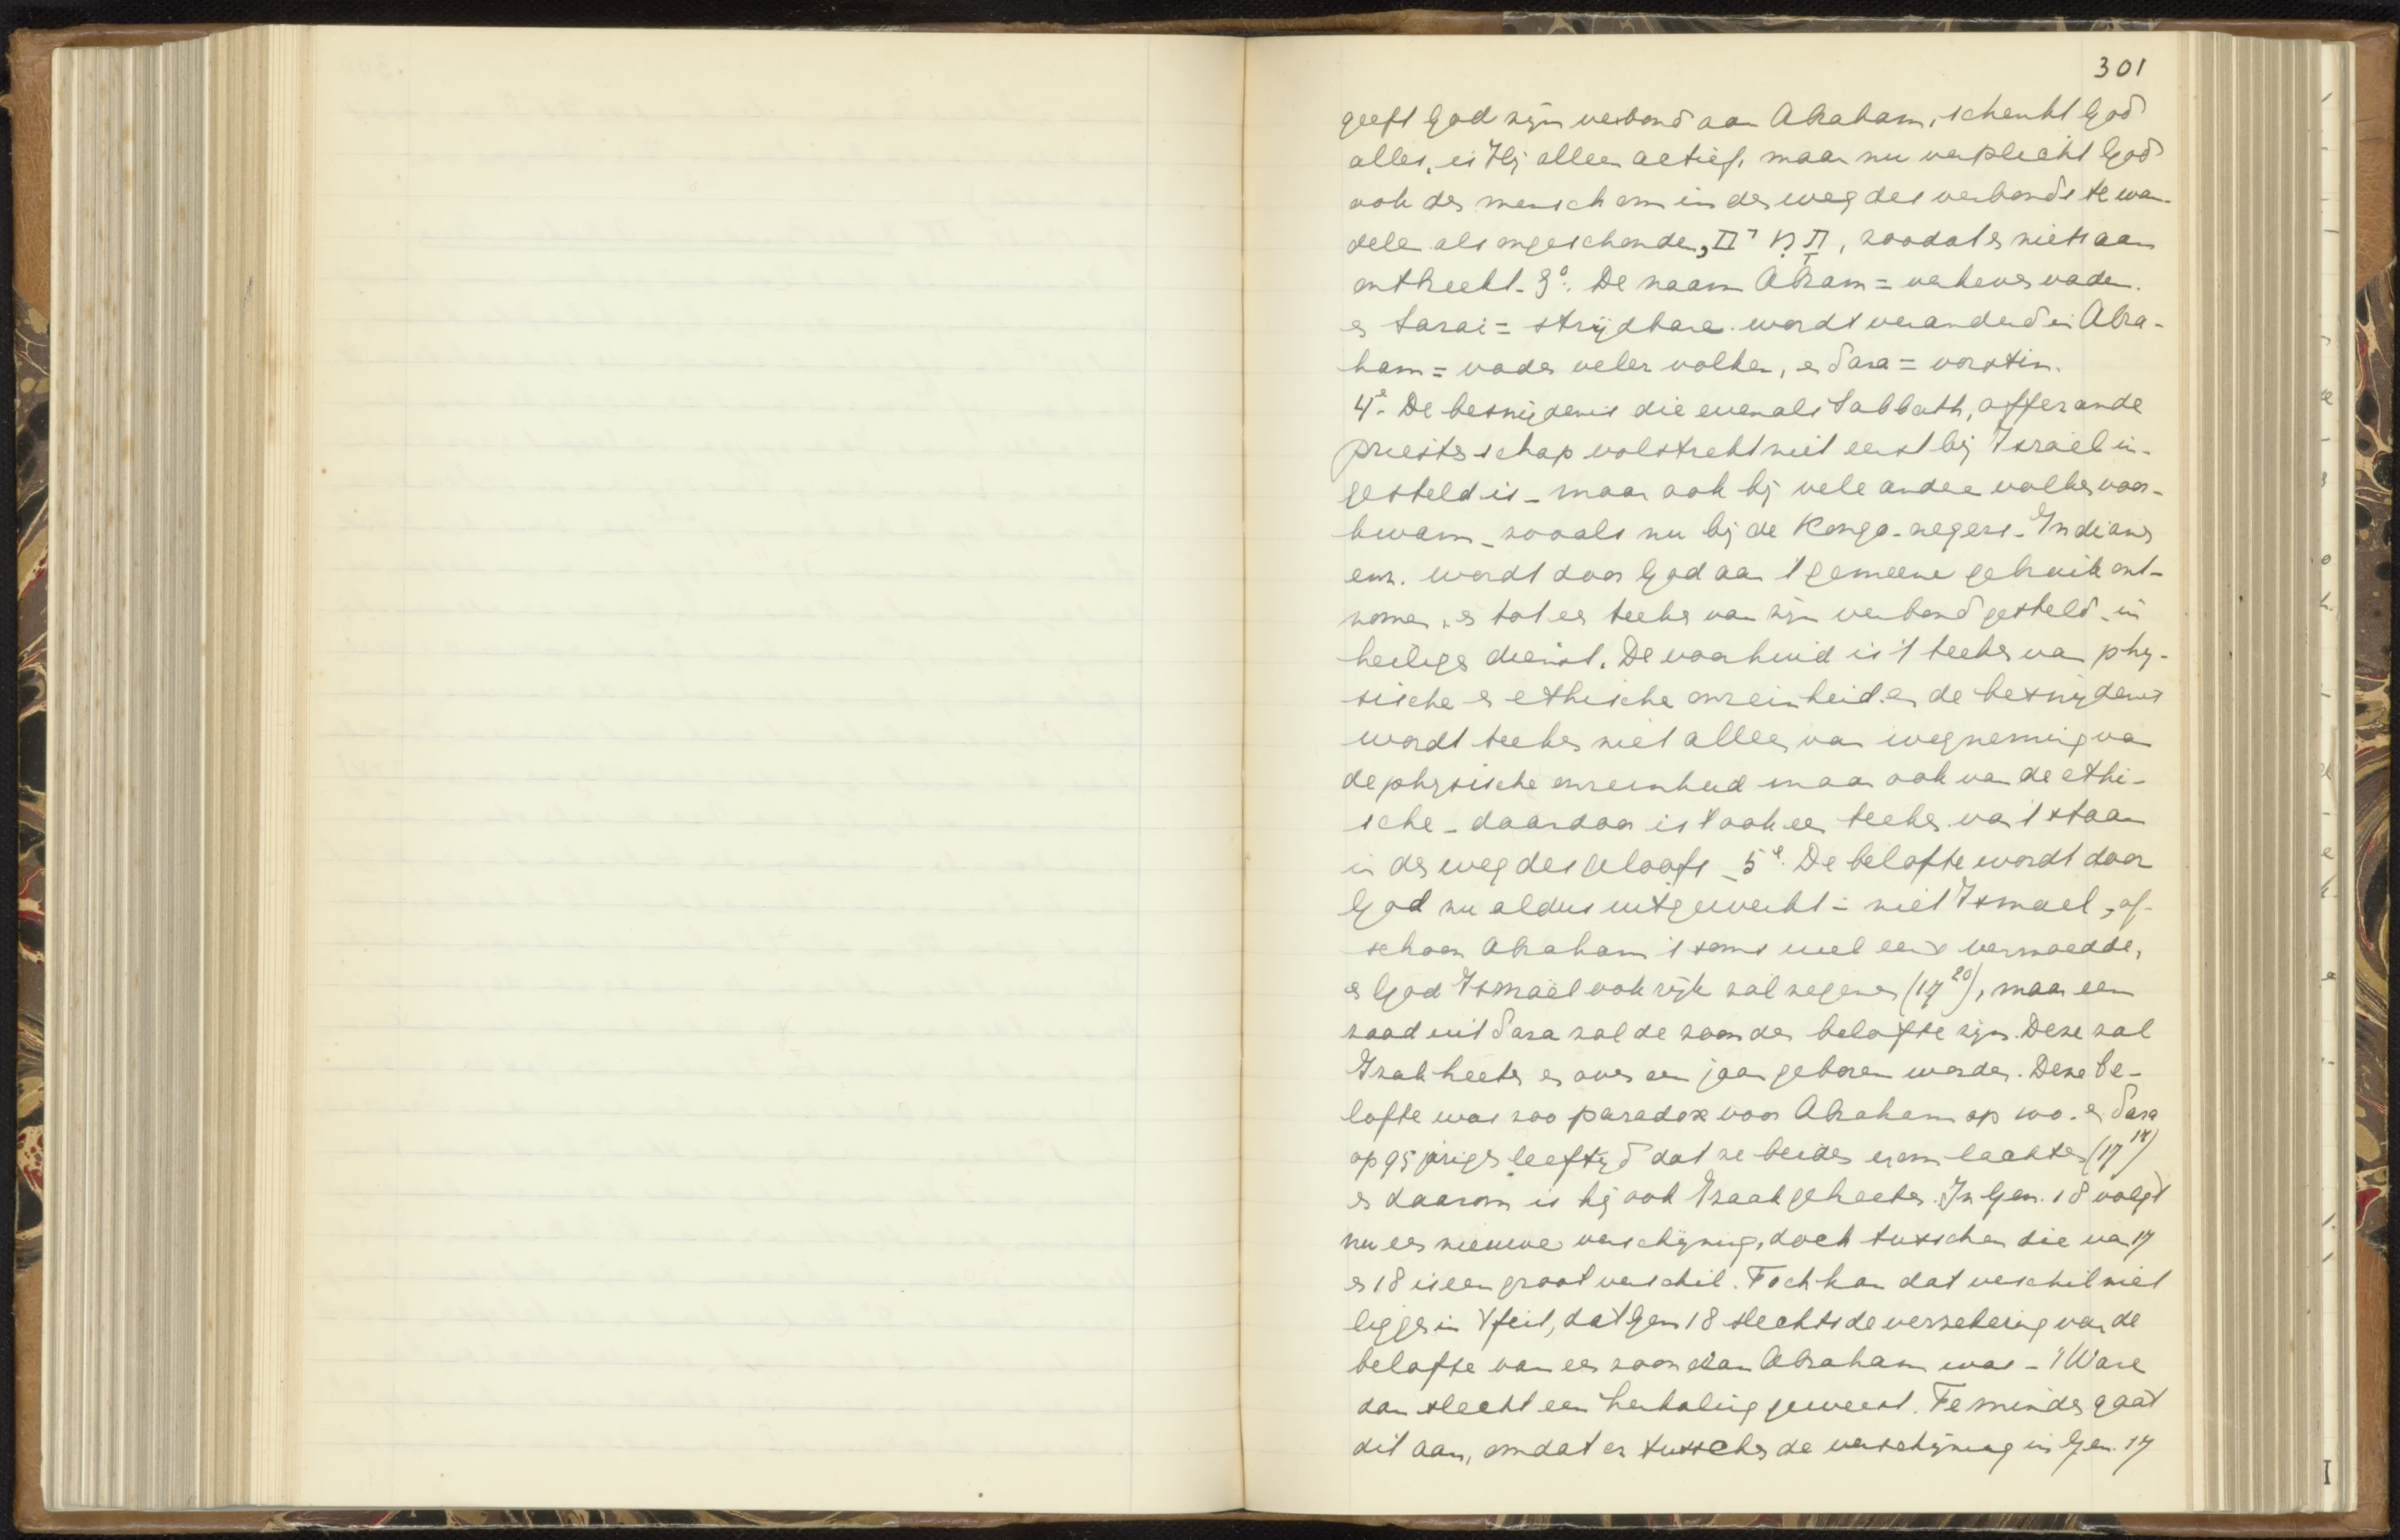 301
geeft God zijn verbond aan Abraham, schenkt God
alles, is Hij alleen actief, maar nu verplicht God
ook den mensch om in den weg des verbonds te wan-
delen als ongeschonden, תמים, zoodat er niets aan
ontbreekt. 3°. De naam Abram = verheven vader.
en Sarai = strijdbare wordt veranderd in Abra-
ham = vader veler volken, en Sara = vorstin.
4e. De besnijdenis die evenals Sabbath, offerande
priesterschap volstrekt niet eerst bij Israël in-
gesteld is – maar ook bij vele andere volken voor-
kwam – zooals nu bij de Kongo-negers – Indianen
enz. wordt door God aan 't gemeene gebruik ont-
nomen, en tot een teeken van zijn verbond gesteld – in
heiligen dienst. De voorhuid is 't teeken van phy-
sische en ethische onreinheid en de besnijdenis
wordt teeken niet alleen van wegneming van
de physische onreinheid maar ook van de ethi-
sche – daardoor is 't ook een teeken van 't staan
in den weg des geloofs – 5e. De belofte wordt door
God nu aldus uitgewerkt: niet Ismael, of-
schoon Abraham 't soms wel eens vermoedde,
en God Ismaël ook rijk zal zegenen (17 20), maar een
zaad uit Sara zal de zoon der belofte zijn. Deze zal
Izak heeten en over een jaar geboren worden. Deze be-
lofte was zoo paradox voor Abraham op 100- en Sara
op 95 jarigen leeftijd dat ze beiden erom lachten (17 17)
en daarom is hij ook Izaak geheeten. In Gen. 18 volgt
nu een nieuwe verschijning, doch tusschen die van 17
en 18 is een groot verschil. Toch kan dat verschil niet
liggen in 't feit, dat Gen 18 slechts de verzekering van de
belofte van een zoon aan Abraham was – 't Ware
dan slecht een herhaling geweest. Te minder gaat
dit aan, omdat er tusschen de verschijning in Gen. 17